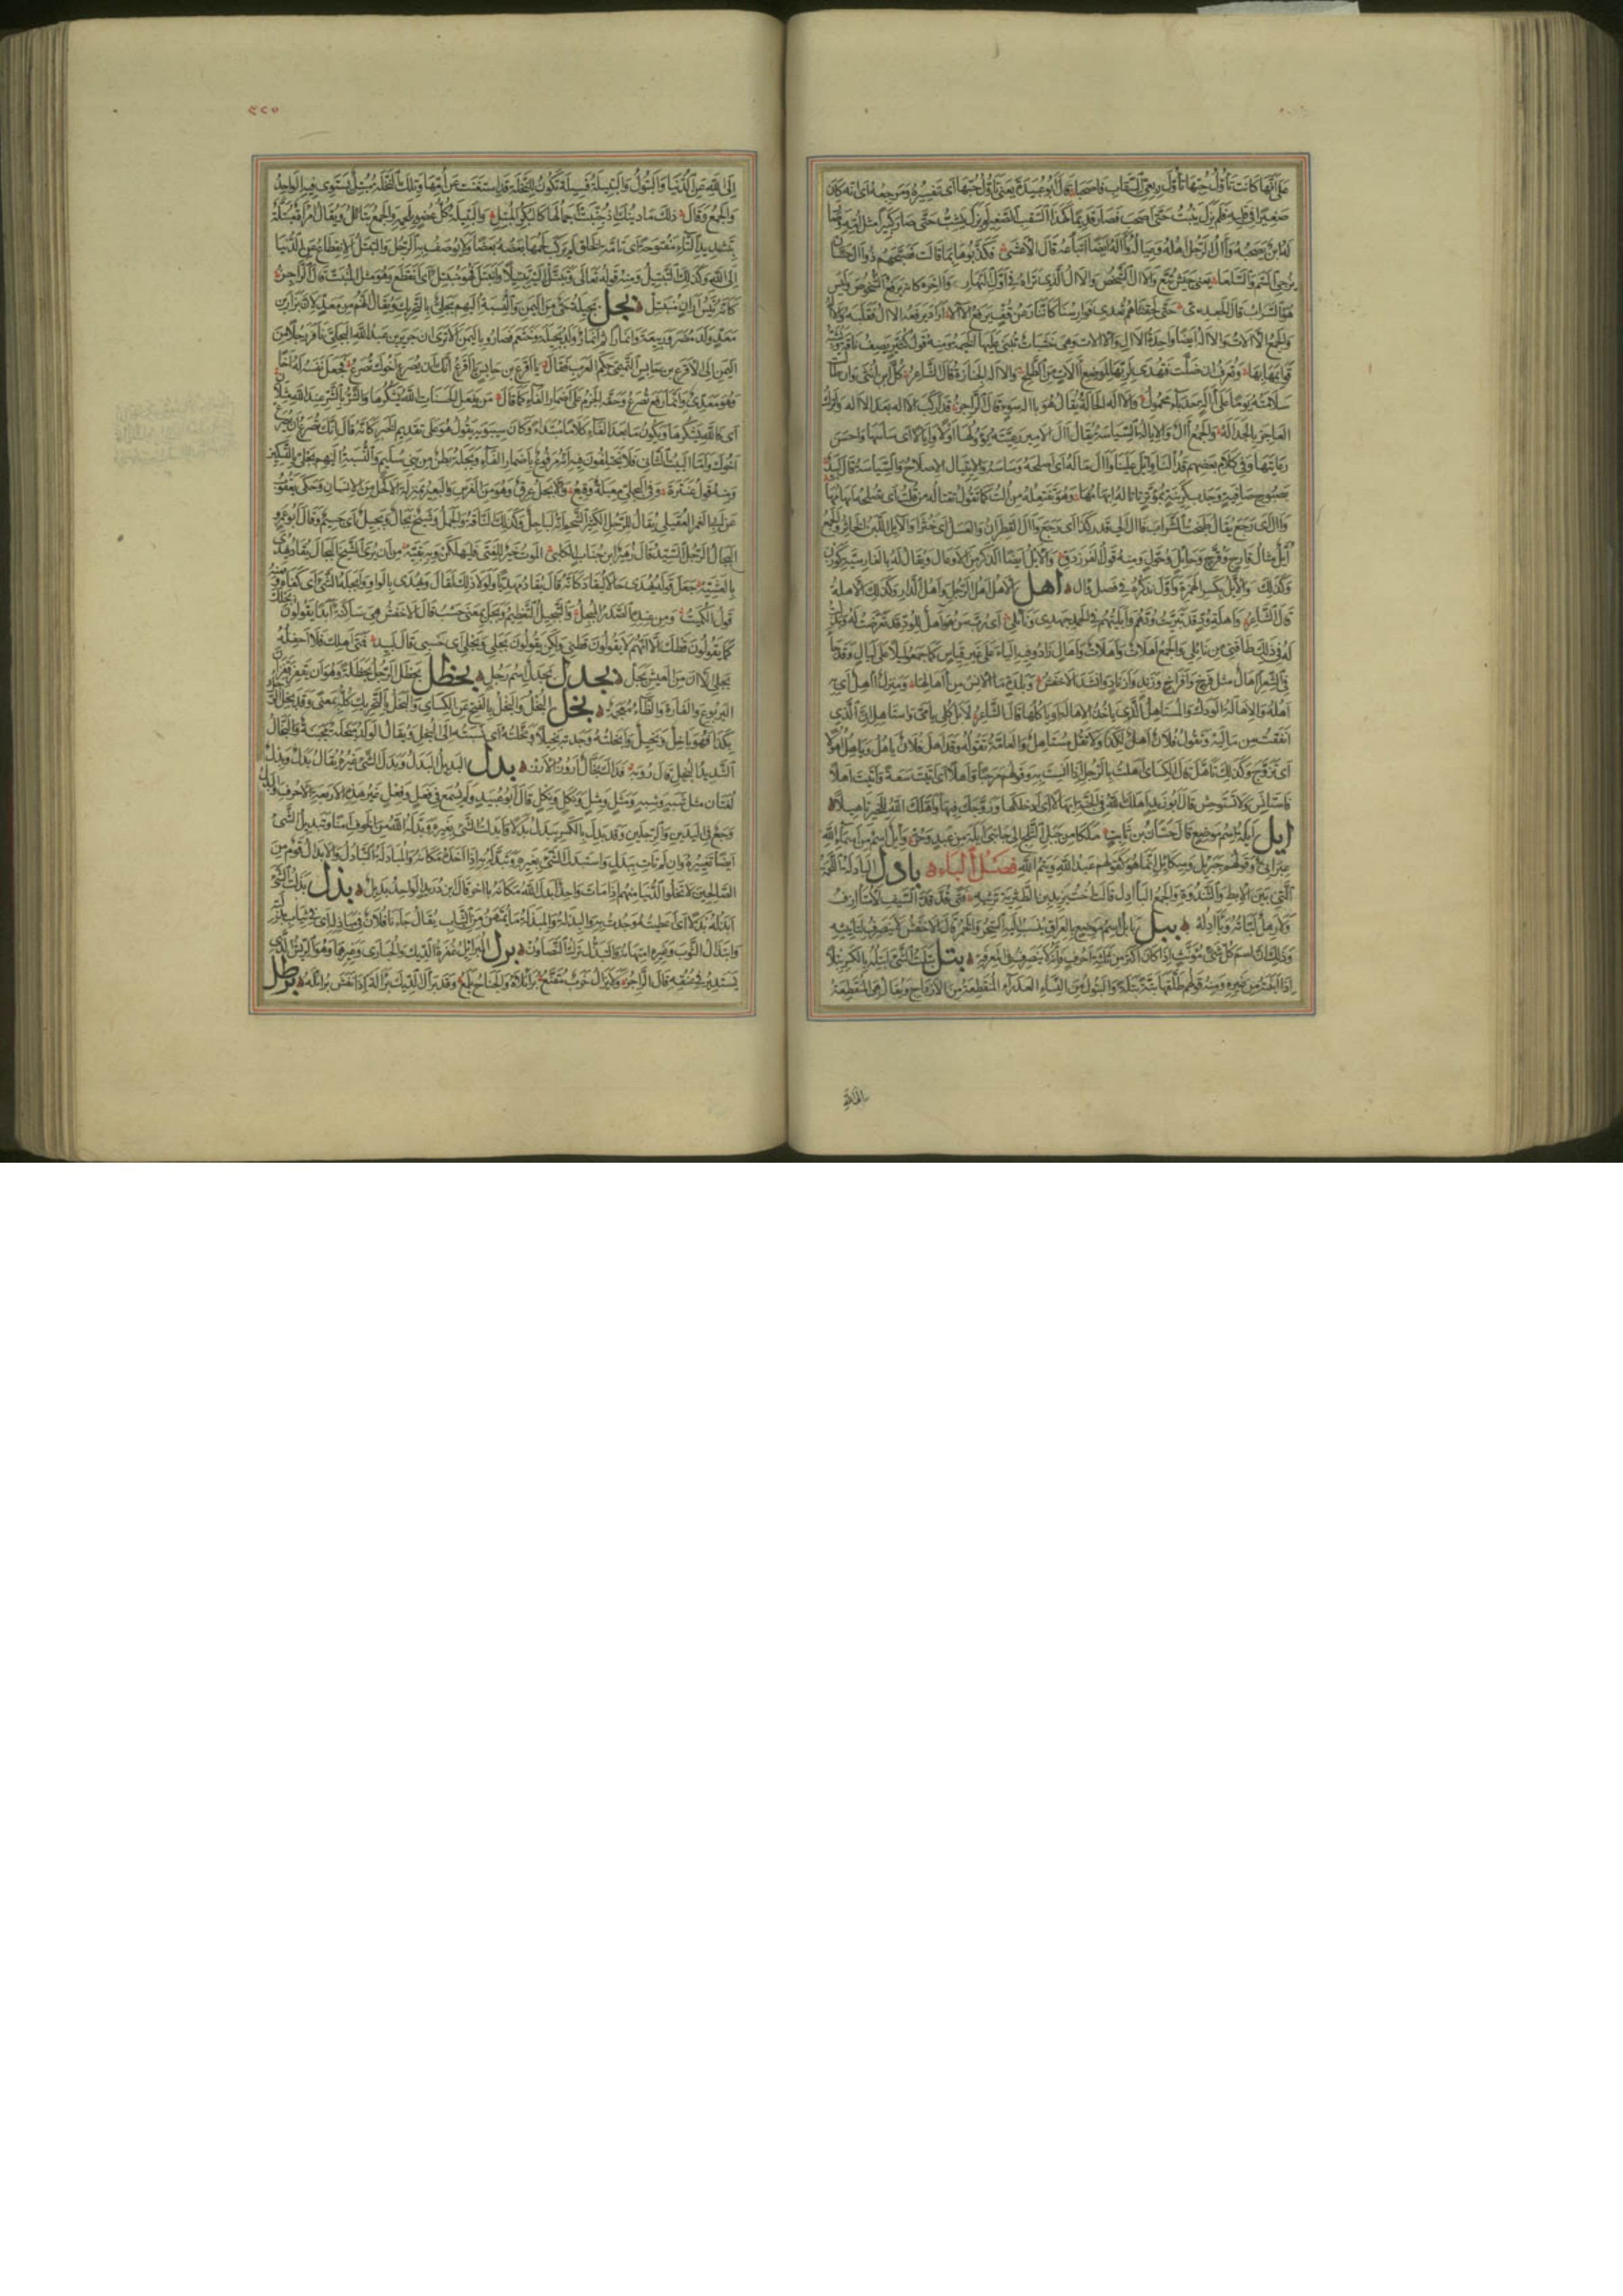 على أنها كانت تأول حبها تأول ربعي السقاب فأصحبا قال أبو عبيدة يعني تأول حبها أي تفسيره ومرجعه أي إنه كان
صغيرا في قلبه فلم يزل ينبت حتى أصحب فصار قديما كهذا السقب الصغير لم يزل يشب حتى صار كبيرا مثل أمه وصار
له ابن يصحبه وآل الرجل أهله وعياله وآله أيضا أتباعه قال الأعشى فكذبوها بما قالت فصبحهم ذو آل حسان
يزجي السم والسلعا يعني جيش تبع والآل الشخص والآل الذي تراه في أول النهار وآخره كأنه يرفع الشخوص وليس
هو السراب قال الجعدي حتى لحقناهم تعدي فوارسنا كأننا رعن قف يرفع الآلا أراد يرفعه الآل فقلبه
والآلة الأداة والجمع الآلات والآلة أيضا واحدة الآل والآلات وهي خشبات تبنى عليها الخيمة ومنه قول كثير يصف ناقة ويشبه
قوائمها بها وتعرف إن ضلت فتهدى لربها لموضع آلات من الطلح والآلة الجنازة قال الشاعر كل ابن أنثى وإن طالت
سلامته يوما على آلة حدباء محمول والآلة الحالة يقال هو بآلة سوء قال الراجز قد أركب الآلة بعد الآله وأترك
العاجز بالجداله والجمع آل والإيالة السياسة يقال آل الأمير رعيته يؤولها أولا وإيالا أي ساسها وأحسن
رعايتها وفي كلام بعضهم قد ألنا وإيل علينا وآل ماله أي أصلحه وساسه والائتيال الإصلاح والسياسة قال لبيد
بصبوح صافية وجذب كرينة بمؤتر تأتاله إبهامها وهو تفتعله من ألت كما تقول تقتاله من قلت أي يصلحه إبهامها
وآل أي رجع يقال طبخت الشراب فآل إلى قدر كذا أي رجع وآل القطران والعسل أي خثر والآيل اللبن الخاثر والجمع
أيل مثال قارح وقرح وحائل وحول ومنه قول الفرزدق والأيل أيضا الذكر من الأوعال ويقال له بالفارسية كوزن
وكذلك والإيل بكسر الهمزة وأول نذكره في فصل وأل اهل الأهل أهل الرجل وأهل الدار وكذلك الأهلة
قال الشاعر وأهلة ود قد تبريت ودهم وأبليتهم في الحمد جهدي ونائلي أي رب من هو أهل للود قد تعرضت له وبذلت
له في ذلك طاقتي من نائلي والجمع أهلات وأهلات وأهال زادوا فيه الياء على غير قياس كما جمعوا ليلا على ليال وقد جاء
في الشعر آهال مثل فرخ وأفراخ وزند وأزناد وأنشد الأخفش وبلدة ما الإنس من آهالها ومنزل آهل أي به
أهله والإهالة الودك والمستأهل الذي يأخذ الإهالة أو يأكلها قال الشاعر لا بل كلي يا مي واستأهلي إن الذي
أنفقت من ماليه وتقول فلان أهل لكذا ولا تقل مستأهل والعامة تقوله وقد أهل فلان يأهل ويأهل أهولا
أي تزوج وكذلك تأهل قال الكسائي أهلت بالرجل إذا أنست به وقولهم مرحبا وأهلا أي أتيت سعة وأتيت أهلا
فاستأنس ولا تستوحش قال أبو زيد آهلك الله في الجنة إيهالا أي أدخلكها وزوجك فيها وأهلك الله للخير تأهيلا
ايل أيلة اسم موضع قال حسان بن ثابت ملكا من جبل الثلج إلى جانبي أيلة من عبد وحر وإيل اسم من أسماء الله
عبراني وقولهم جبريل وميكائيل إنما هو كقولهم عبد الله وتيم الله فصل الباء بادل البأدلة اللحمة
التي بين الإبط والثندوة والجمع البآدل قالت أخت يزيد بن الطثرية ترثيه فتى قد قد السيف لا متآزف
ولا رهل لباته وبآدله ببل بابل اسم موضع بالعراق ينسب إليه السحر والخمر قال الأخفش لا ينصرف لتأنيثه
وذلك أن اسم كل شيء مؤنث إذا كان أكثر من ثلاثة أحرف فإنه لا ينصرف في المعرفة بتل بتلت الشيء أبتله بالكسر بتلا
إذا أبنته من غيره ومنه قولهم طلقها بتة بتلة والبتول من النساء العذراء المنقطعة من الأزواج ويقال هي المنقطعة
إلى الله عن الدنيا والبتول والبتيلة فسيلة تكون للنخلة قد استغنت عن أمها وتلك النخلة مبتل يستوي فيه الواحد
والجمع وقال ذلك ما دينك إذ جنبت أجمالها كالبكر المبتل والبتيلة كل عضو بلحمه والجمع بتائل ويقال امرأة مبتلة
بتشديد التاء مفتوحة أي تامة الخلق لم يركب لحمها بعضه بعضا ولا يوصف به الرجل والتبتل الانقطاع عن الدنيا
إلى الله وكذلك التبتيل ومنه قوله تعالى وتبتل إليه تبتيلا وانبتل فهو منبتل أي انقطع وهو مثل المنبت قال الراجز
كأنه تيس إران منبتل بجل بجيلة حي من اليمن والنسبة إليهم بجلي بالتحريك ويقال إنهم من معد لأن نزار بن
معد ولد مضر وربيعة وإيادا وأنمارا ثم إن أنمار ولد بجيلة وخثعم فصاروا باليمن ألا ترى أن جرير بن عبد الله البجلي نافر رجلا من
اليمن إلى الأقرع بن حابس التميمي حكم العرب فقال يا أقرع بن حابس يا أقرع إنك إن يصرع أخوك تصرع فجعل نفسه له أخا
وهو معدي وإنما رفع تصرع وحقه الجزم على إضمار الفاء كما قال من يفعل الحسنات الله يشكرها والشر بالشر عند الله مثلان
أي فالله يشكرها ويكون ما بعد الفاء كلاما مبتدأ وكان سيبويه يقول هو على تقديم الخبر كأنه قال إنك تصرع إن يصرع
أخوك وأما البيت الثاني فلا يختلفون فيه أنه مرفوع بإضمار الفاء وبجلة بطن من بني سليم والنسبة إليهم بجلي بالتسكين
ومنه قول عنترة وفي البجلي معبلة وقيع والأبجل عرق وهو من الفرس والبعير بمنزلة الأكحل من الإنسان وحكى يعقوب
عن أبي الغمر العقيلي يقال للرجل الكثير الشحم إنه لباجل وكذلك الناقة والجمل وشيخ بجال وبجيل أي جسيم وقال أبو عمرو
البجال الرجل السيد قال زهير بن جناب الكلبي الموت خير للفتى فليهلكن وبه بقيه من أن يرى الشيخ البجال يقاد يهدى
بالعشيه جعل قوله يهدى حالا ليقاد كأنه قال يقاد مهديا ولولا ذلك لقال ويهدى بالواو وأبجله الشيء أي كفاه ومنه
قول الكميت ومن عنده الصدر المبجل والتبجيل التعظيم وبجل بمعنى حسب قال الأخفش هي ساكنة أبدا يقولون بجلك
كما يقولون قطك إلا أنهم لا يقولون بجلني كما يقولون قطني ولكن يقولون بجلي وبجلي أي حسبي قال لبيد فمتى أهلك فلا أحفله
بجلي الآن من العيش بجل بجدل بجدل اسم رجل بحظل بحظل الرجل بحظلة وهو أن يقفز قفزان
اليربوع والفأرة والظاء معجمة بخل البخل والبخل بالفتح عن الكسائي والبخل بالتحريك كله بمعنى وقد بخل الرجل
بكذا فهو باخل وبخيل وأبخلته وجدته بخيلا وبخلته أي نسبته إلى البخل ويقال الولد مبخلة مجبنة والبخال
الشديد البخل قال رؤبة فذاك بخال أروز الأرز بدل البديل البدل وبدل الشيء غيره يقال بدل وبدل
لغتان مثل شبه وشبه ومثل ومثل ونكل ونكل قال أبو عبيد ولم نسمع في فعل وفعل غير هذه الأربعة الأحرف والبدل
وجع في اليدين والرجلين وقد بدل بالكسر يبدل بدلا وأبدلت الشيء بغيره وبدله الله من الخوف أمنا وتبديل الشيء
أيضا تغييره وإن لم تأت ببدل واستبدل الشيء بغيره وتبدله به إذا أخذه مكانه والمبادلة التبادل والأبدال قوم من
الصالحين لا تخلو الدنيا منهم إذا مات واحد أبدل الله مكانه بآخر قال ابن دريد الواحد بديل بذل بذلت الشيء
أبذله بذلا أي أعطيته وجدت به والبذلة والمبذلة ما يمتهن من الثياب يقال جاءنا فلان في مباذله أي في ثياب بذلته
وابتذال الثوب وغيره امتهانه والتبذل ترك التصاون برل البرائل عفرة الديك والحبارى وغيرهما وهو الريش الذي
يستدير في عنقه قال الراجز ولا يزال خرب مقنع برائلاه والجناح يلمع وقد برأل الديك برألة إذا نفش برائله برطل